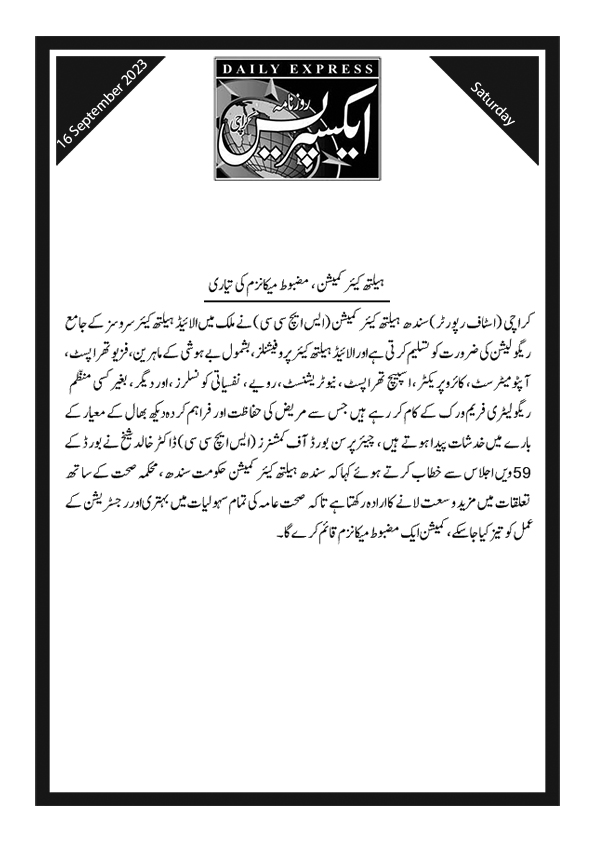 16 September 2023
DAILY EXPRESS
روزنامہ
ایکسپریس
کراچی
Saturday
ہیلتھ کیئر کمیشن، مضبوط میکانزم کی تیاری
کراچی (اسٹاف رپورٹر) سندھ ہیلتھ کیئر کمیشن (ایس ایچ سی سی) نے ملک میں الائیڈ ہیلتھ کیئر سروسز کے جامع
ریگولیشن کی ضرورت کو تسلیم کرتی ہے اور الائیڈ ہیلتھ کیئر پروفیشنلز، بشمول بے ہوشی کے ماہرین، فزیو تھراپسٹ،
آپٹومیٹرسٹ، کائروپریکٹر، اسپیچ تھراپسٹ، نیوٹریشنسٹ، رویے، نفسیاتی کونسلرز، اور دیگر، بغیر کسی منظم
ریگولیٹری فریم ورک کے کام کر رہے ہیں جس سے مریض کی حفاظت اور فراہم کردہ دیکھ بھال کے معیار کے
بارے میں خدشات پیدا ہوتے ہیں، چیئرپرسن بورڈ آف کمشنرز (ایس ایچ سی سی) ڈاکٹر خالد شیخ نے بورڈ کے
59ویں اجلاس سے خطاب کرتے ہوئے کہا کہ سندھ ہیلتھ کیئر کمیشن حکومت سندھ، محکمہ صحت کے ساتھ
تعلقات میں مزید وسعت لانے کا ارادہ رکھتا ہے تاکہ صحت عامہ کی تمام سہولیات میں بہتری اور رجسٹریشن کے
عمل کو تیز کیا جاسکے، کمیشن ایک مضبوط میکانزم قائم کرے گا۔